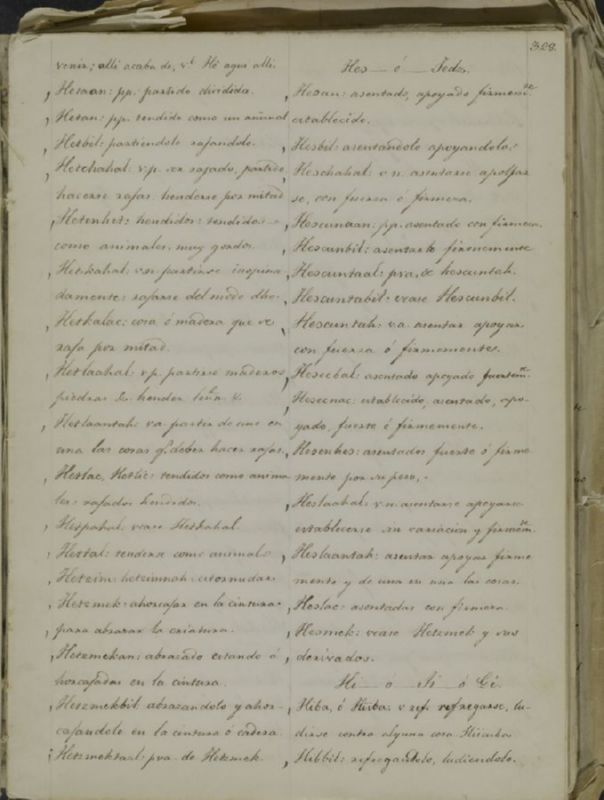 308.
venir; alli acaba de, vt Hé aqui alli.
Hetaan: pp. partido dividido.
Hetan: pp. tendido como un animal
Hetbil: partiendolo rajandolo.
Hetchahal: vp. ser rajado, partido,
hacerse rajas. henderse por mitad
Hetenhet: hendidos: tendidos
como animales, muy gordos.
Hetkahal: vn. partirse inopina
damente: rajarse del modo dho.
Hetkalac: cosa ó madera que se
raja por mitad.
Hetlaahal: vp. partirse maderos,
piedras &. hender leña &.
Hetlaantah: va. partir de uno en
una las cosas q. deben hacer rajas.
Hetlac, Hetlic: tendidos como anima
les: rajados hendidos.
Hetpahal: vease Hetkahal.
Hettal: tenderse como animal.
Hetzim: hetzimnah: estornudar.
Hetzmek: ahorcajar en la cintura
para abrazar la criatura.
Hetzmekan: abrazado estando á
horcajadas en la cintura.
Hetzmekbil, abrazandolo y ahor-
cajandolo en la cintura ó cadera.
Hetzmektaal: pva. de Hetzmek.
Hes — ó — Jedz.
Hesan: asentado, apoyado firmemte
establecido.
Hesbil: asentandolo apoyandolo.
Heschahal: v.n. asentarse apollar
se, con fuerza ó firmeza.
Hescunaan: pp. asentado con firmeza.
Hescunbil: asentarlo firmemente
Hescuntaal: pva, de hescuntah.
Hescuntabil: vease Hescunbil.
Hescuntah: va. asentar apoyar
con fuerza ó firmemente.
Hesecbal: asentado apoyado fuertemte.
Hesecnac: establecido, asentado, apo-
yado, fuerte ó firmemente.
Hesenhes: asentados fuerte ó firme
mente por su peso.
Heslaahal: v.n. asentarse apoyarse
establecerse sin variacion y firmemte.
Heslaantah: asentar apoyar firme
mente y de una en una las cosas.
Heslac: asentadas con firmeza.
Hesmek: vease Hetzmek y sus
derivados.
Hi — ó — Ji — ó Gi.
Hiba, ó Hiiba: v ref. refregarse, lu-
dirse contra alguna cosa.
Hibbil: refregandolo, ludiendolo.